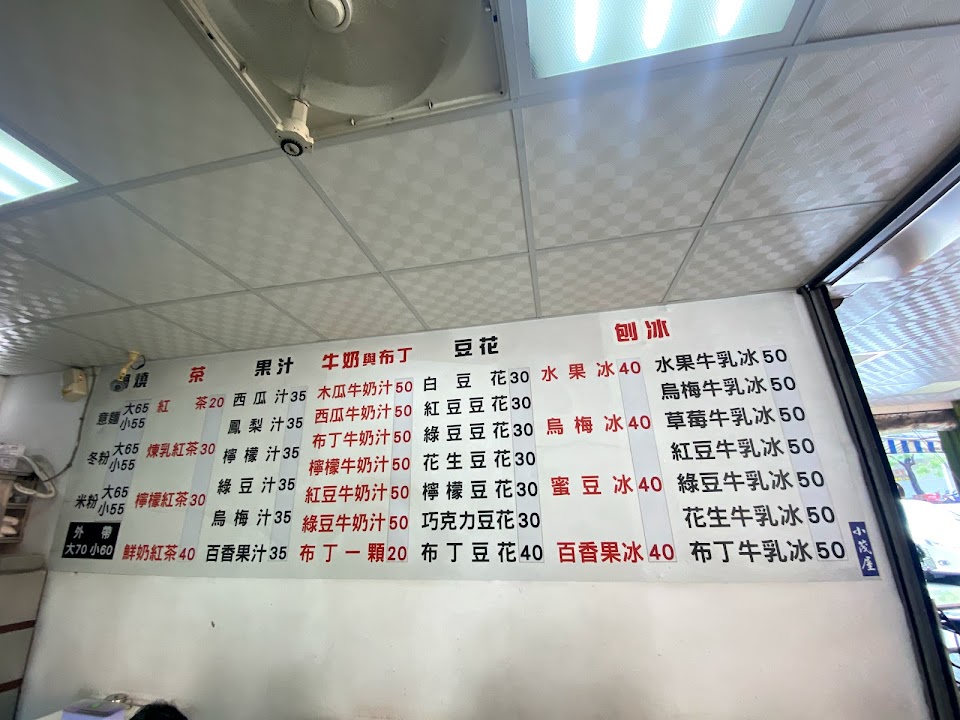 燒
意麵 大65 小55
冬粉 大65 小55
米粉 大65 小55
外帶
大70 小60
茶
紅茶20
煉乳紅茶30
檸檬紅茶30
鮮奶紅茶40
果汁
西瓜汁35
鳳梨汁35
檸檬汁35
綠豆汁35
烏梅汁35
百香果汁35
牛奶與布丁
木瓜牛奶汁50
西瓜牛奶汁50
布丁牛奶汁50
檸檬牛奶汁50
紅豆牛奶汁50
綠豆牛奶汁50
布丁一顆20
豆花
白豆花30
紅豆豆花30
綠豆豆花30
花生豆花30
檸檬豆花30
巧克力豆花30
布丁豆花40
刨冰
水果冰40
烏梅冰40
蜜豆冰40
百香果冰40
水果牛乳冰50
烏梅牛乳冰50
草莓牛乳冰50
紅豆牛乳冰50
綠豆牛乳冰50
花生牛乳冰50
布丁牛乳冰50
小茂屋